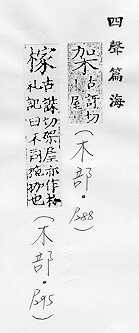 四聲篇海
架 古訝切
屋
(木部·388)
榢 古訝切架屋亦作
礼記曰不同椸枷也
(木部·395)